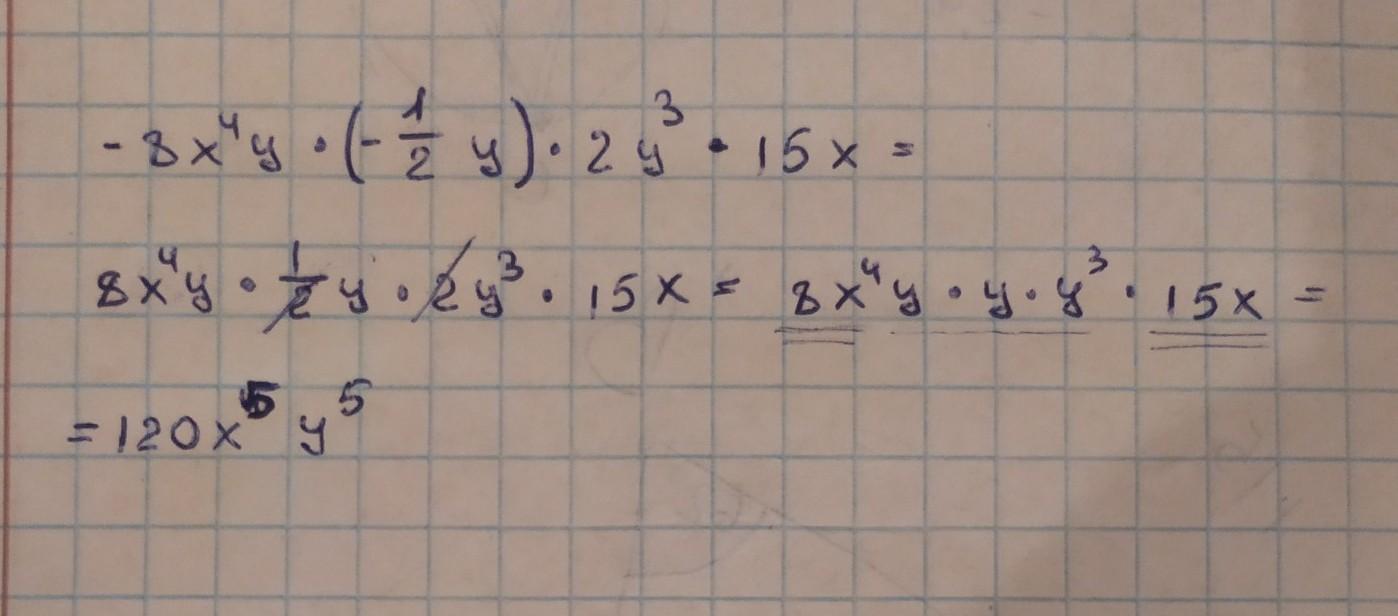 -8x⁴y · (-1/2 y) · 2y³ · 15x =
8x⁴y · 1/2 y · 2y³ · 15x = 8x⁴y · y · y³ · 15x =
= 120x⁵ y⁵